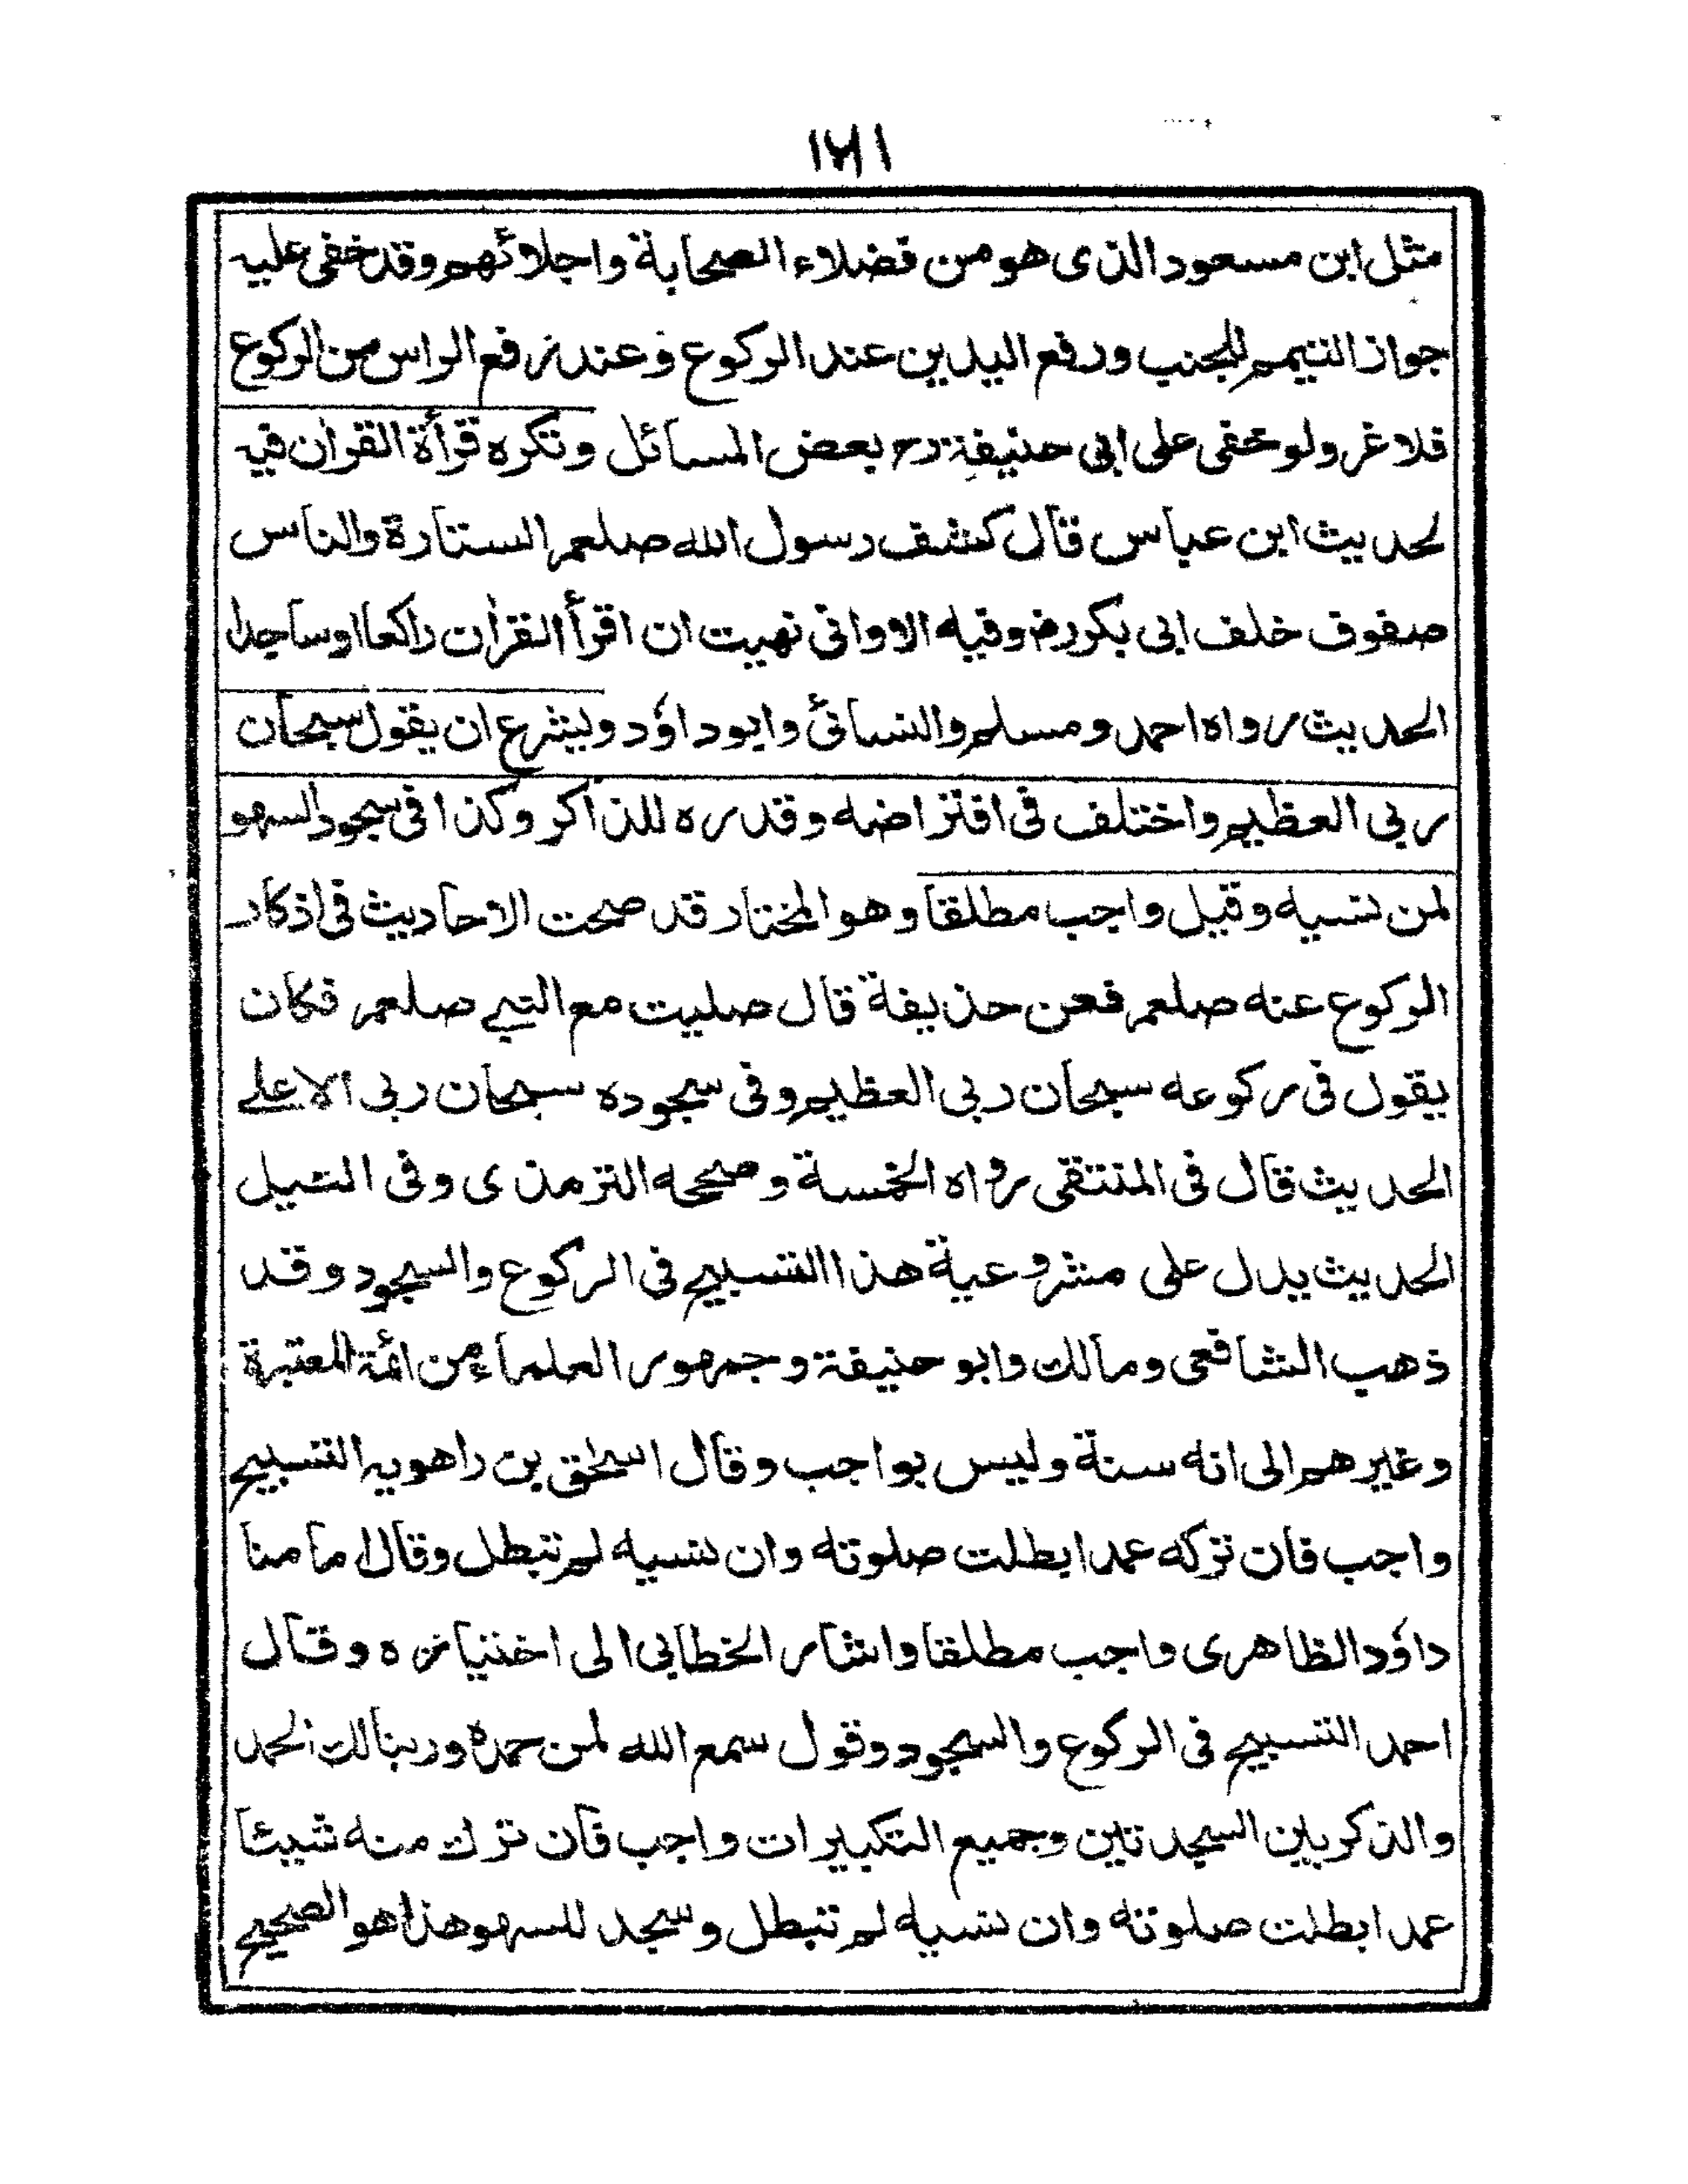 ١٦١
مثل ابن مسعود الذى هو من فضلاء الصحابة واجلائهم وقد خفى عليه
جواز التيمم للجنب ورفع اليدين عند الركوع وعند رفع الراس من الركوع
فلا غرو لو خفى على ابى حنيفة رح بعض المسائل وتكره قرأة القران فيه
لحديث ابن عباس قال كشف رسول الله صلعم الستارة والناس
صفوف خلف ابى بكر رض وفيه الا وانى نهيت ان اقرأ القران راكعا اوساجدا
الحديث رواه احمد ومسلم والنسائى وابوداؤد ويشرع ان يقول سبحان
ربى العظيم واختلف فى افتراضه وقدره للذاكر وكذا فى سجود السهو
لمن نسيه وقيل واجب مطلقا وهو المختار قد صحت الاحاديث فى اذكار
الركوع عنه صلعم فعن حذيفة قال صليت مع النبى صلعم فكان
يقول فى ركوعه سبحان ربى العظيم وفى سجوده سبحان ربى الاعلے
الحديث قال فى المنتقى رواه الخمسة وصححه الترمذى وفى النيل
الحديث يدل على مشروعية هذا التسبيح فى الركوع والسجود وقد
ذهب الشافعى ومالك وابو حنيفة وجمهور العلماء من ائمة المعتبرة
وغيرهم الى انه سنة وليس بواجب وقال اسحٰق بن راهويه التسبيح
واجب فان تركه عمدا بطلت صلوته وان نسيه لم تبطل وقال امامنا
داؤد الظاهرى واجب مطلقا واشار الخطابى الى اختياره وقال
احمد التسبيح فى الركوع والسجود وقول سمع الله لمن حمده وربنا لك الحمد
والذكر بين السجدتين وجميع التكبيرات واجب فان ترك منه شيئا
عمدا بطلت صلوته وان نسيه لم تبطل وسجد للسهو هذا هو الصحيح